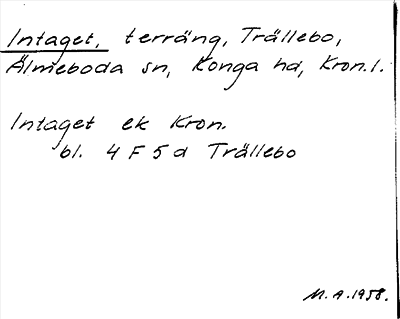 Intaget, terräng, Trällebo,
Älmeboda sn, Konga hd, Kron.l.
Intaget ek Kron.
bl. 4 F 5 d Trällebo
M.A.1958.